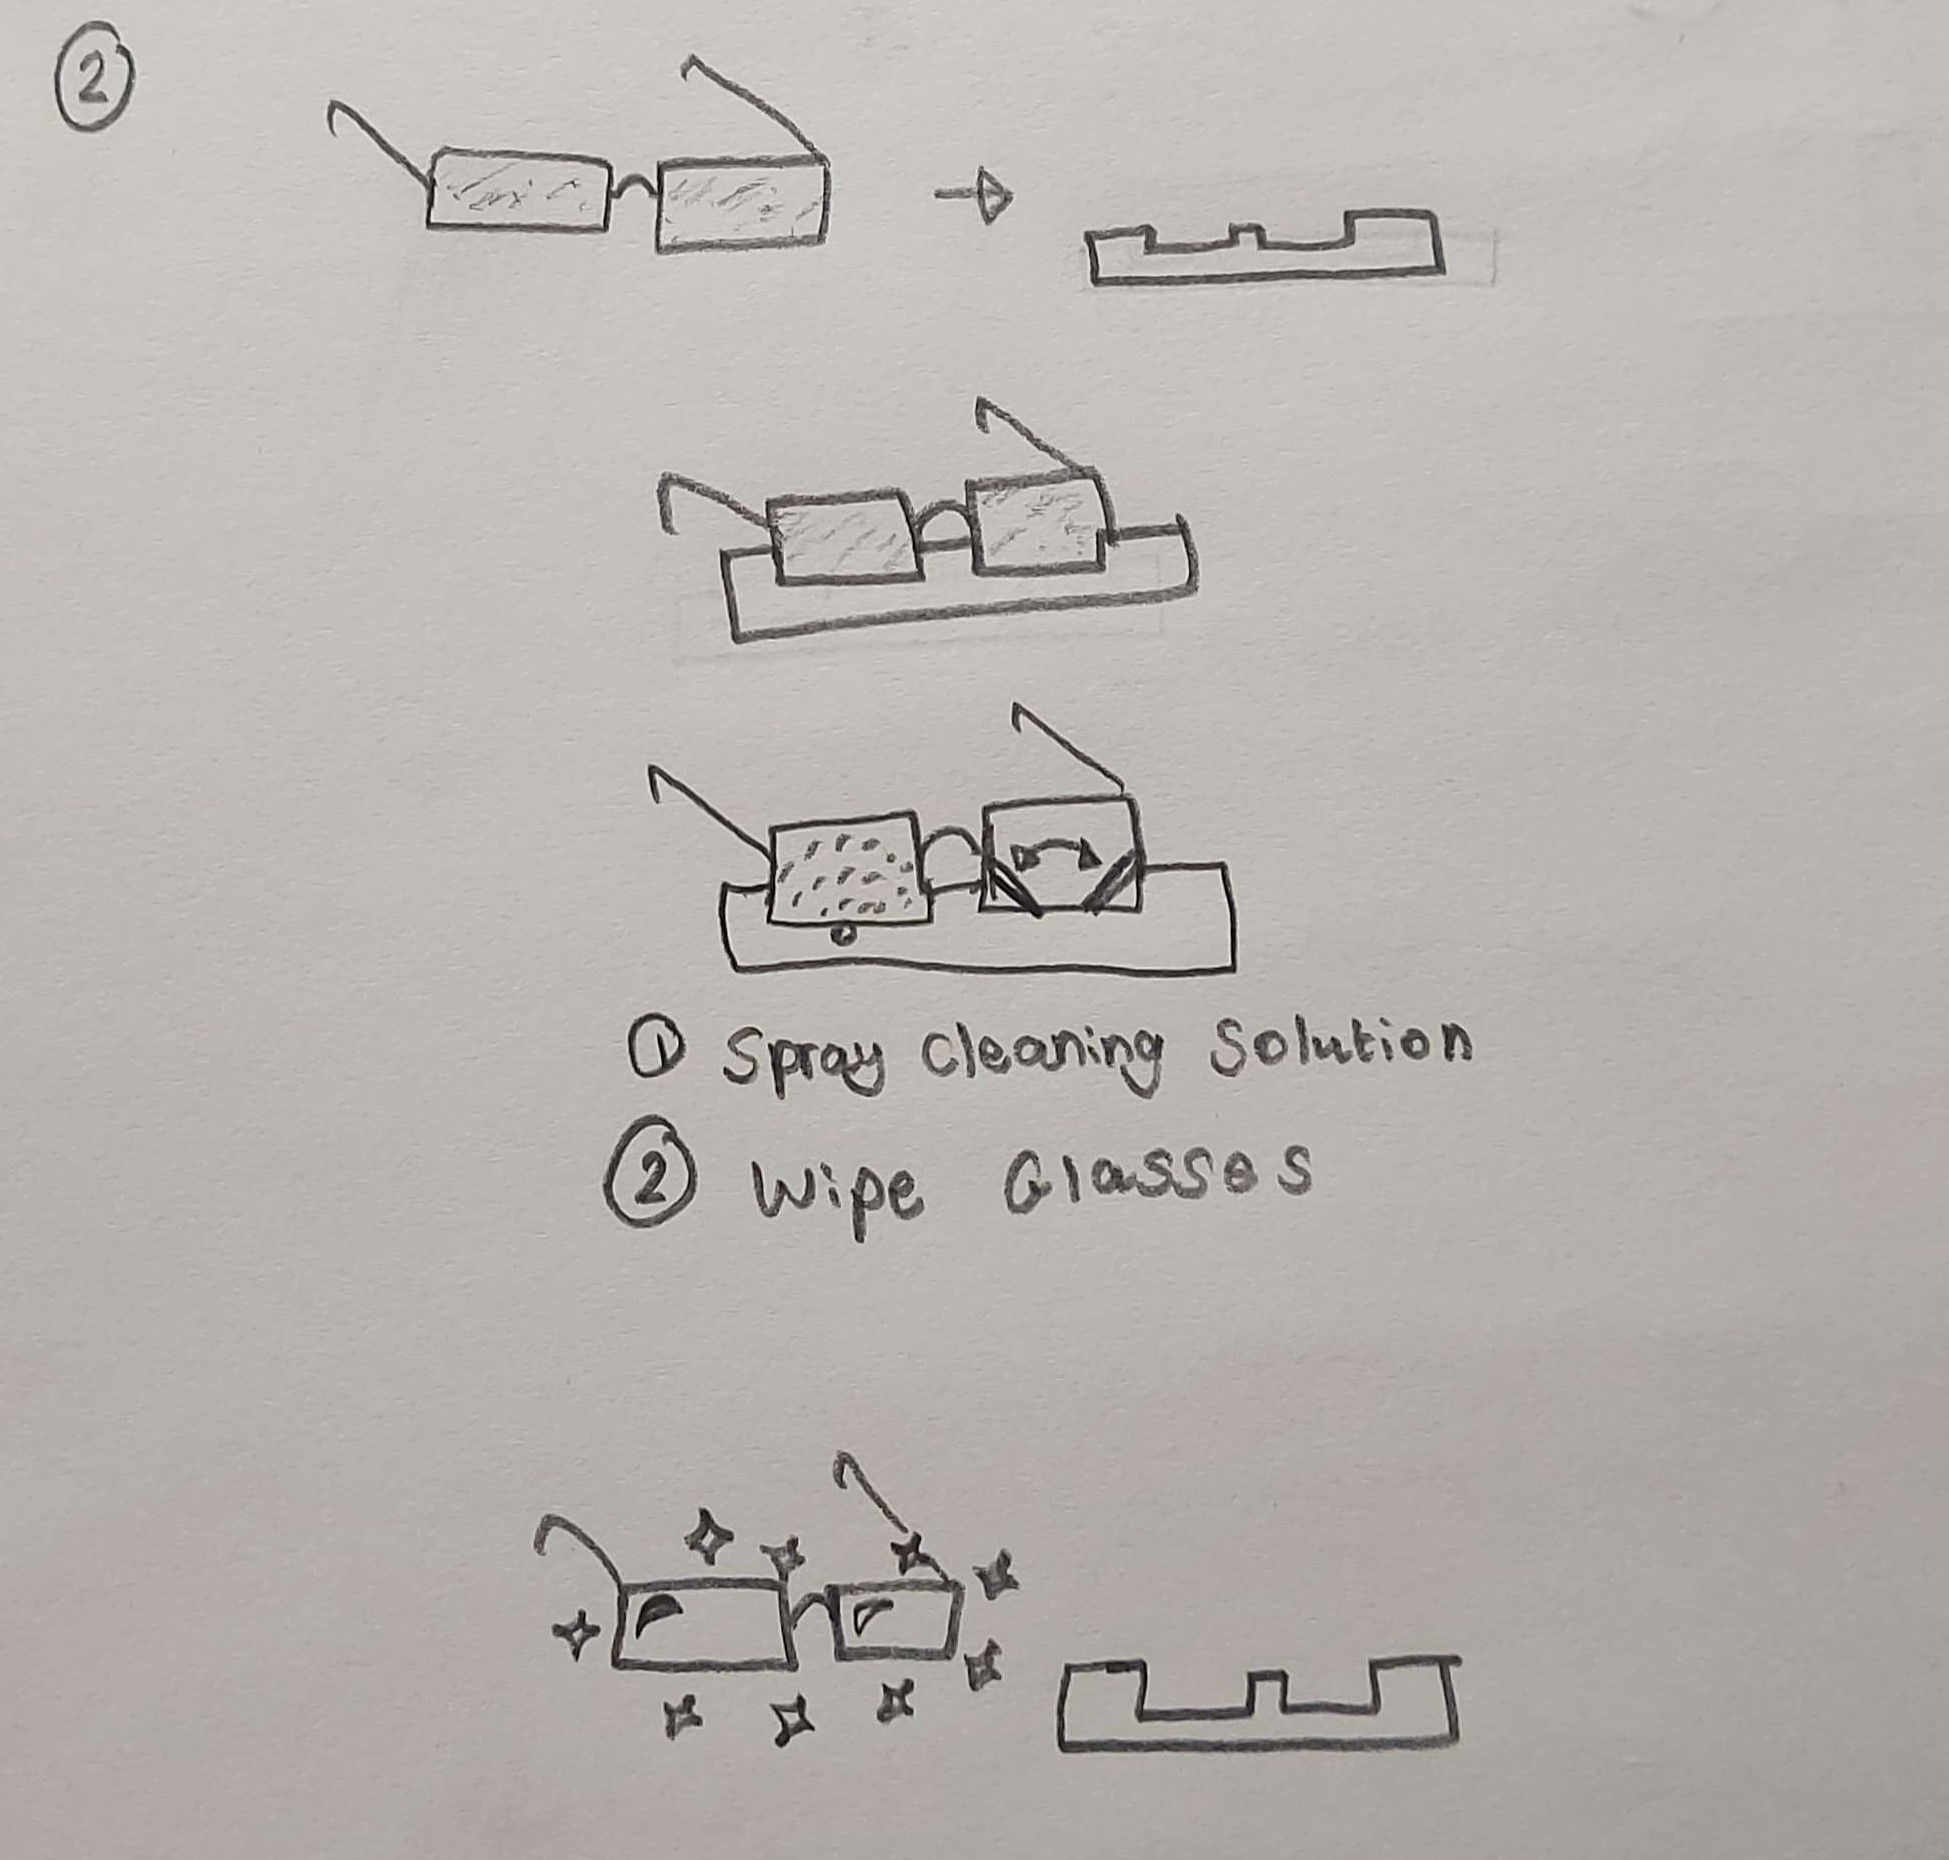 ②
① Spray Cleaning Solution
② Wipe Glasses